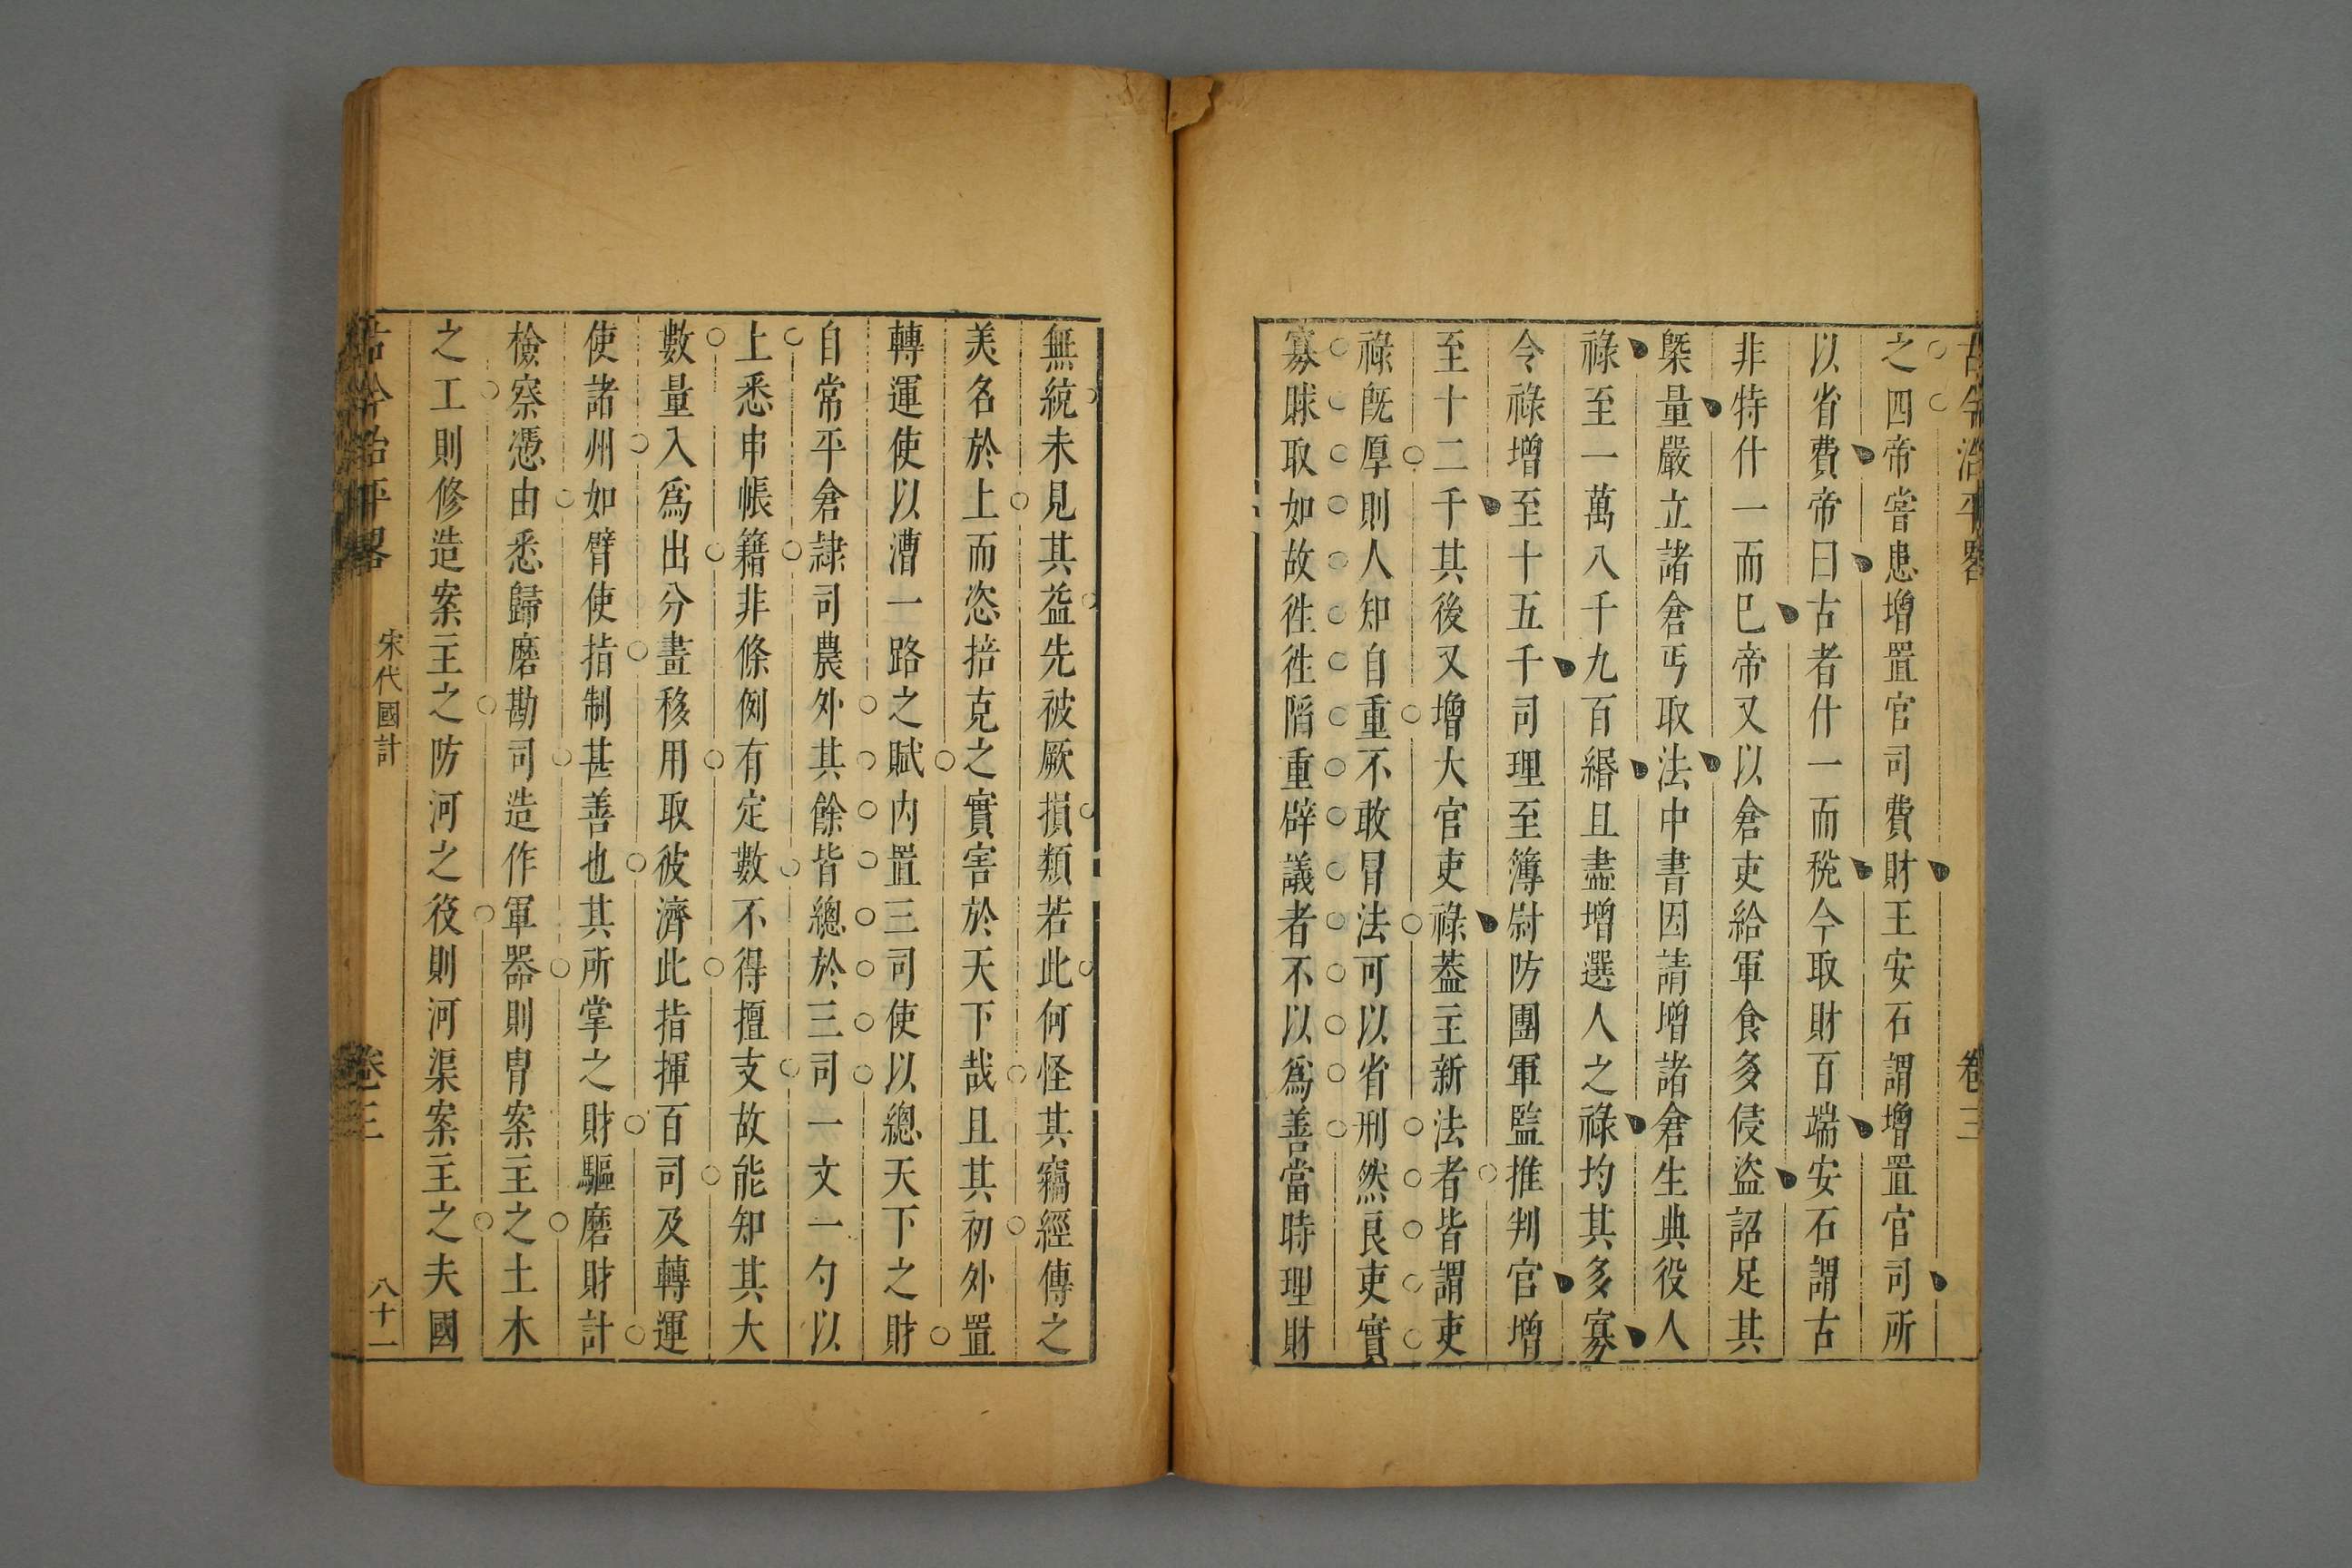 古今治平畧 卷三
之四帝嘗患增置官司費財王安石謂增置官司所
以省費帝曰古者什一而稅今取財百端安石謂古
非特什一而已帝又以倉吏給軍食多侵盜詔足其
槩量嚴立諸倉丐取法中書因請增諸倉生典役人
祿至一萬八千九百緡且盡增選人之祿均其多寡
令祿增至十五千司理至簿尉防團軍監推判官增
至十二千其後又增大官吏祿葢主新法者皆謂吏
祿既厚則人知自重不敢冒法可以省刑然良吏實
寡賕取如故徃徃陷重辟議者不以為善當時理財
無統未見其益先被厥損類若此何怪其竊經傳之
美名於上而恣掊克之實害於天下哉且其初外置
轉運使以漕一路之賦内置三司使以總天下之財
自常平倉隷司農外其餘皆總於三司一文一勺以
上悉申帳籍非條例有定數不得擅支故能知其大
數量入爲出分畫移用取彼濟此指揮百司及轉運
使諸州如臂使指制甚善也其所掌之財驅磨財計
檢察憑由悉歸磨勘司造作軍器則胄案主之土木
之工則修造案主之防河之役則河渠案主之夫國
古今治平畧 宋代國計 卷三 八十一